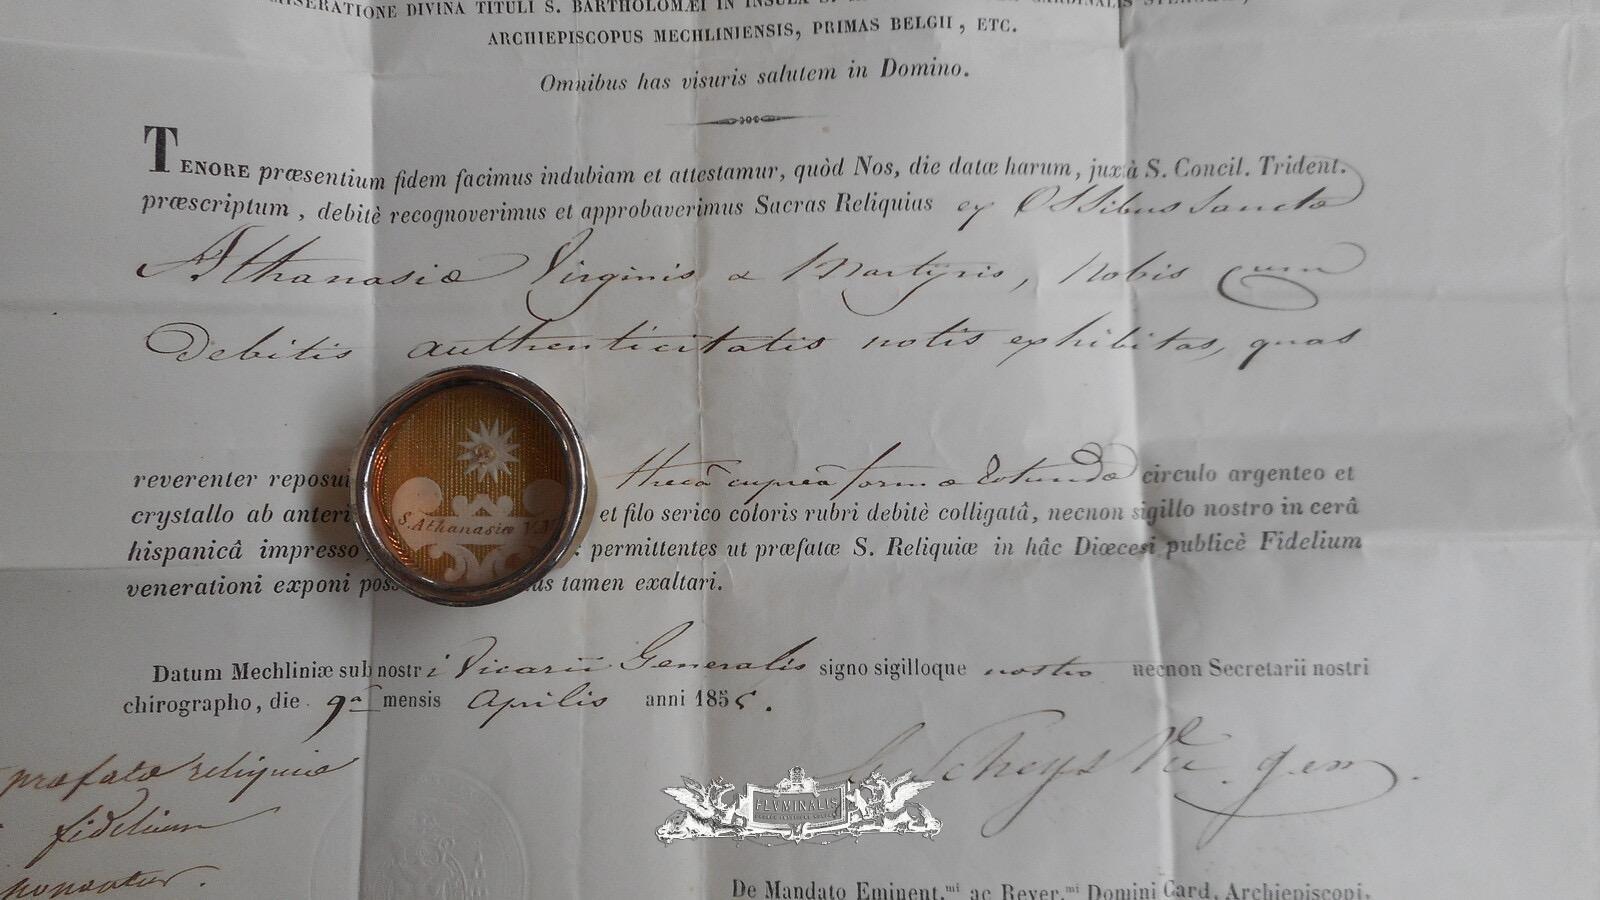 MISERATIONE DIVINA TITULI S. BARTHOLOMÆI IN INSULA S.
ARCHIEPISCOPUS MECHLINIENSIS, PRIMAS BELGII, ETC.
Omnibus has visuris salutem in Domino.
TENORE præsentium fidem facimus indubiam et attestamur, quòd Nos, die datæ harum, juxà S. Concil. Trident.
præscriptum, debitè recognoverimus et approbaverimus Sacras Reliquias ex Ossibus Sanctæ
Athanasiæ Virginis & Martyris, nobis cum
debitis authenticitatis notis exhibitas, quas
reverenter reposui thecâ cupreâ formæ rotundæ circulo argenteo et
crystallo ab anteri et filo serico coloris rubri debitè colligatâ, necnon sigillo nostro in cerâ
hispanicâ impresso : permittentes ut præfatæ S. Reliquiæ in hâc Diœcesi publicè Fidelium
venerationi exponi poss us tamen exaltari.
S. Athanasiæ V. M
Datum Mechliniæ sub nostri Vicarii Generalis signo sigilloque nostro necnon Secretarii nostri
chirographo, die 9ª mensis Aprilis anni 185
præfatæ reliquiæ
fidelium
ponantur.
Scheys Vic. gen.
FLVMINALIS
De Mandato Eminent.mi ac Rever.mi Domini Card. Archiepiscopi,